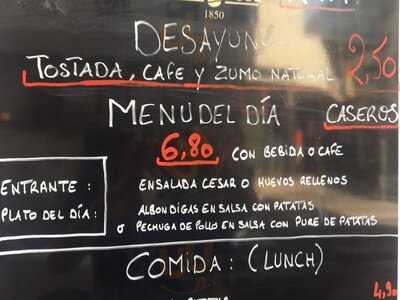 1850
DESAYUNO
TOSTADA, CAFE Y ZUMO NATURAL 2,50
MENU DEL DÍA CASEROS
6,80 CON BEBIDA O CAFE
ENTRANTE : ENSALADA CESAR O HUEVOS RELLENOS
PLATO DEL DÍA : ALBONDIGAS EN SALSA CON PATATAS
O PECHUGA DE POLLO EN SALSA CON PURE DE PATATAS
COMIDA : (LUNCH)
4,90